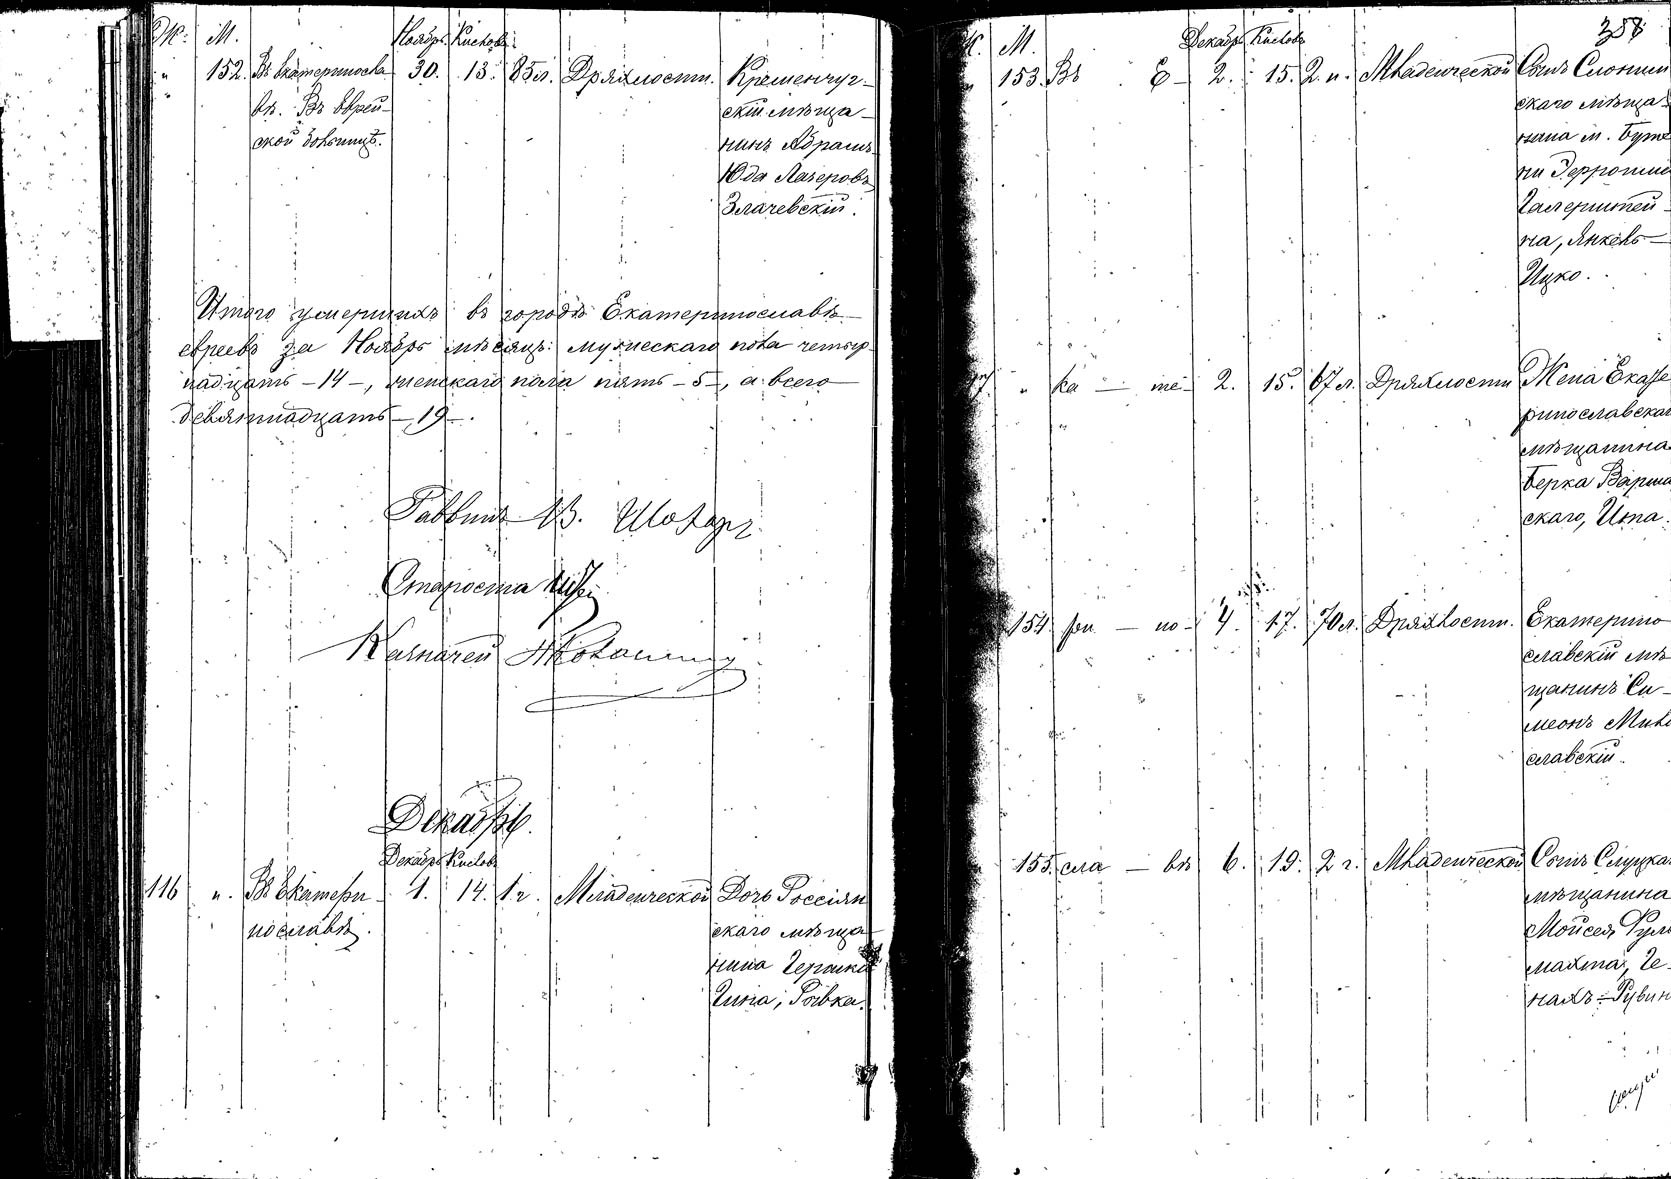 Ж. М. Ноябрь Кислевъ
" 152. Въ Екатериносла- 30. 13. 85 л. Дряхлости. Кременчуг-
вѣ. Въ Еврей- скій мѣща-
ской больницѣ. нинъ Абрамъ
Юда Лазеровъ
Злачевскій.
Итого умершихъ въ городѣ Екатеринославѣ
евреевъ за Ноябрь мѣсяцъ: мужескаго пола четыр-
надцать - 14 -, женскаго пола пять - 5 -, а всего
девятнадцать - 19 -.
Раввинъ
Староста
Казначей
Декабрь.
Декабрь Кислевъ
116 ". Въ Екатери- 1. 14. 1 г. Младенческой Дочь Россіян
нославѣ. скаго мѣща-
нина Гершка
Гина, Ривка.
358
Ж. М. Декабрь Кислевъ
153. Въ Е- 2. 15. 2 н. Младенческой Сынъ Слоним
скаго мѣща-
нина м.
ни
Галерштей-
на, Янкель-
Ицко.
" ка - те- 2. 15. 67 л. Дряхлости Жена Екате
ринославскаг
мѣщанина
Берка Варша
скаго,
154. ри - но- 4. 17. 70 л. Дряхлости. Екатерино
славскій мѣ
щанинъ Си-
меонъ Мило
славскій.
155. сла - вѣ 6. 19. 2 г. Младенческой Сынъ Слуцка
мѣщанина
Мойсея
махта, Ге-
нахъ-Рувин